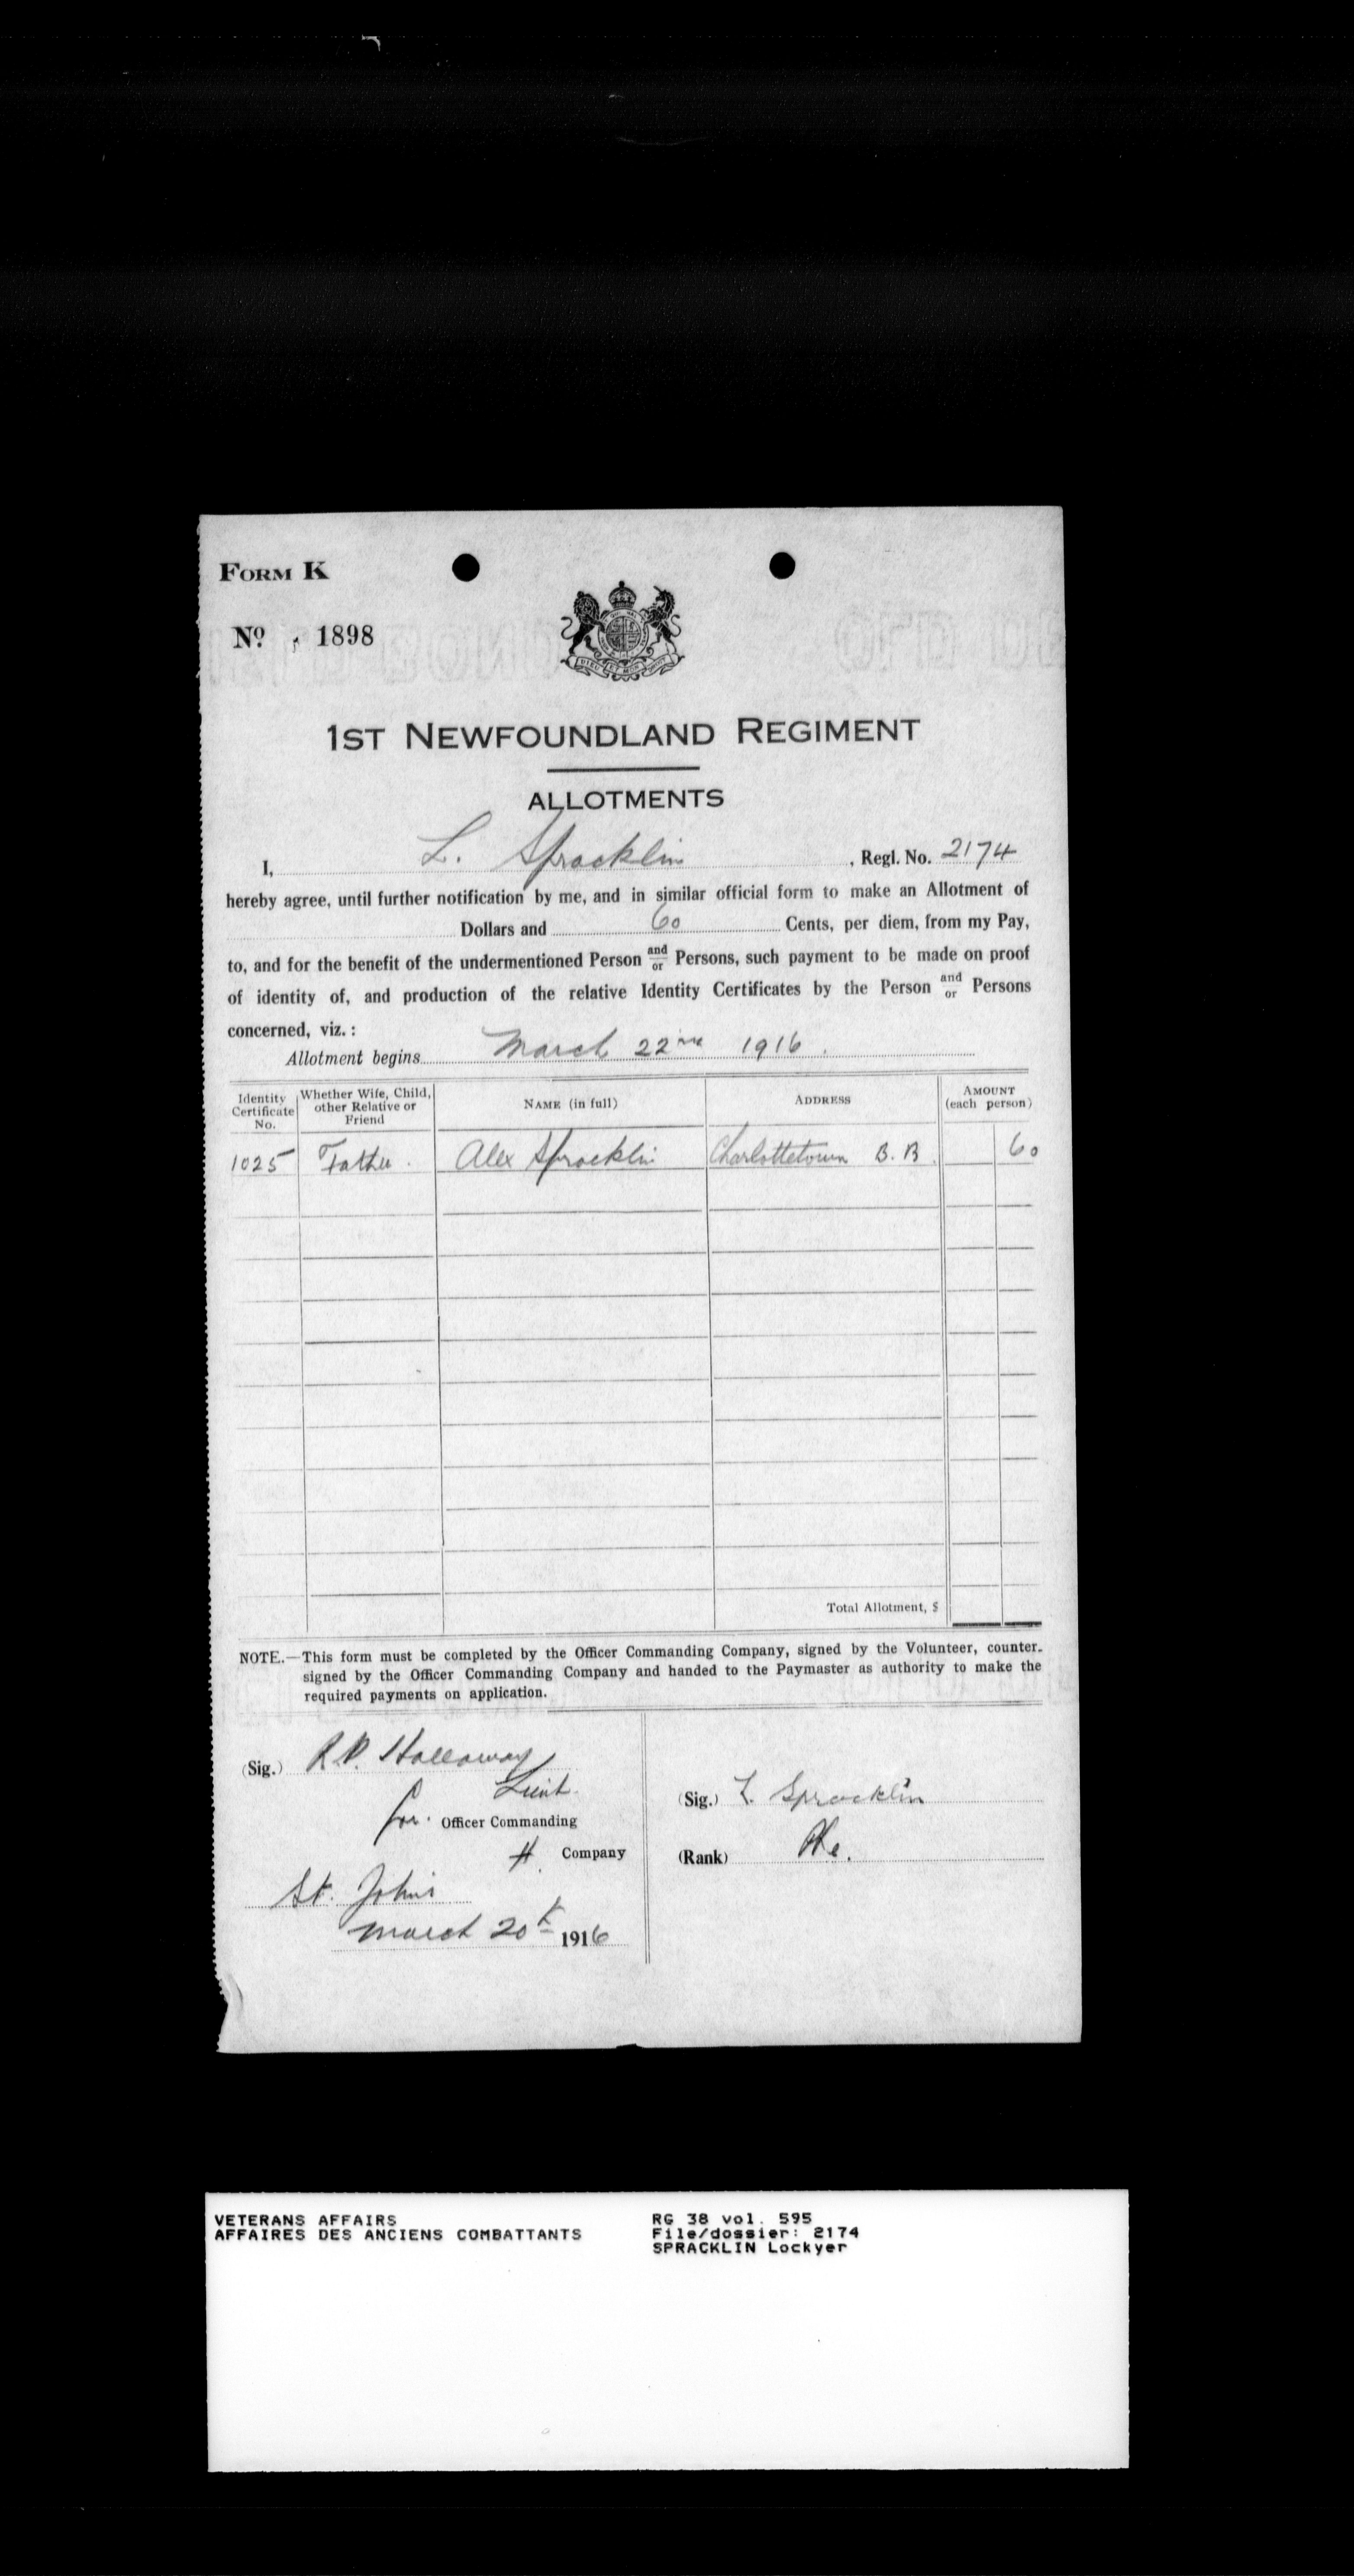 FORM K
Nº 1898
DIEU ET MON DROIT
1ST NEWFOUNDLAND REGIMENT
ALLOTMENTS
I, L. Spracklin, Regl. No. 2174
hereby agree, until further notification by me, and in similar official form to make an Allotment of
Dollars and 60 Cents, per diem, from my Pay,
to, and for the benefit of the undermentioned Person and/or Persons, such payment to be made on proof
of identity of, and production of the relative Identity Certificates by the Person and/or Persons
concerned, viz.:
Allotment begins March 22nd 1916.
Identity Certificate No. Whether Wife, Child, other Relative or Friend NAME (in full) ADDRESS AMOUNT (each person)
1025 Father. Alex Spracklin Charlottetown B.B. 60
Total Allotment, $
NOTE.—This form must be completed by the Officer Commanding Company, signed by the Volunteer, counter-
signed by the Officer Commanding Company and handed to the Paymaster as authority to make the
required payments on application.
(Sig.) R.P. Holloway
Lieut.
for. Officer Commanding
H. Company
St. Johns
March 20th 1916
(Sig.) L. Spracklin
(Rank) Pte.
VETERANS AFFAIRS
AFFAIRES DES ANCIENS COMBATTANTS
RG 38 vol. 595
File/dossier: 2174
SPRACKLIN Lockyer